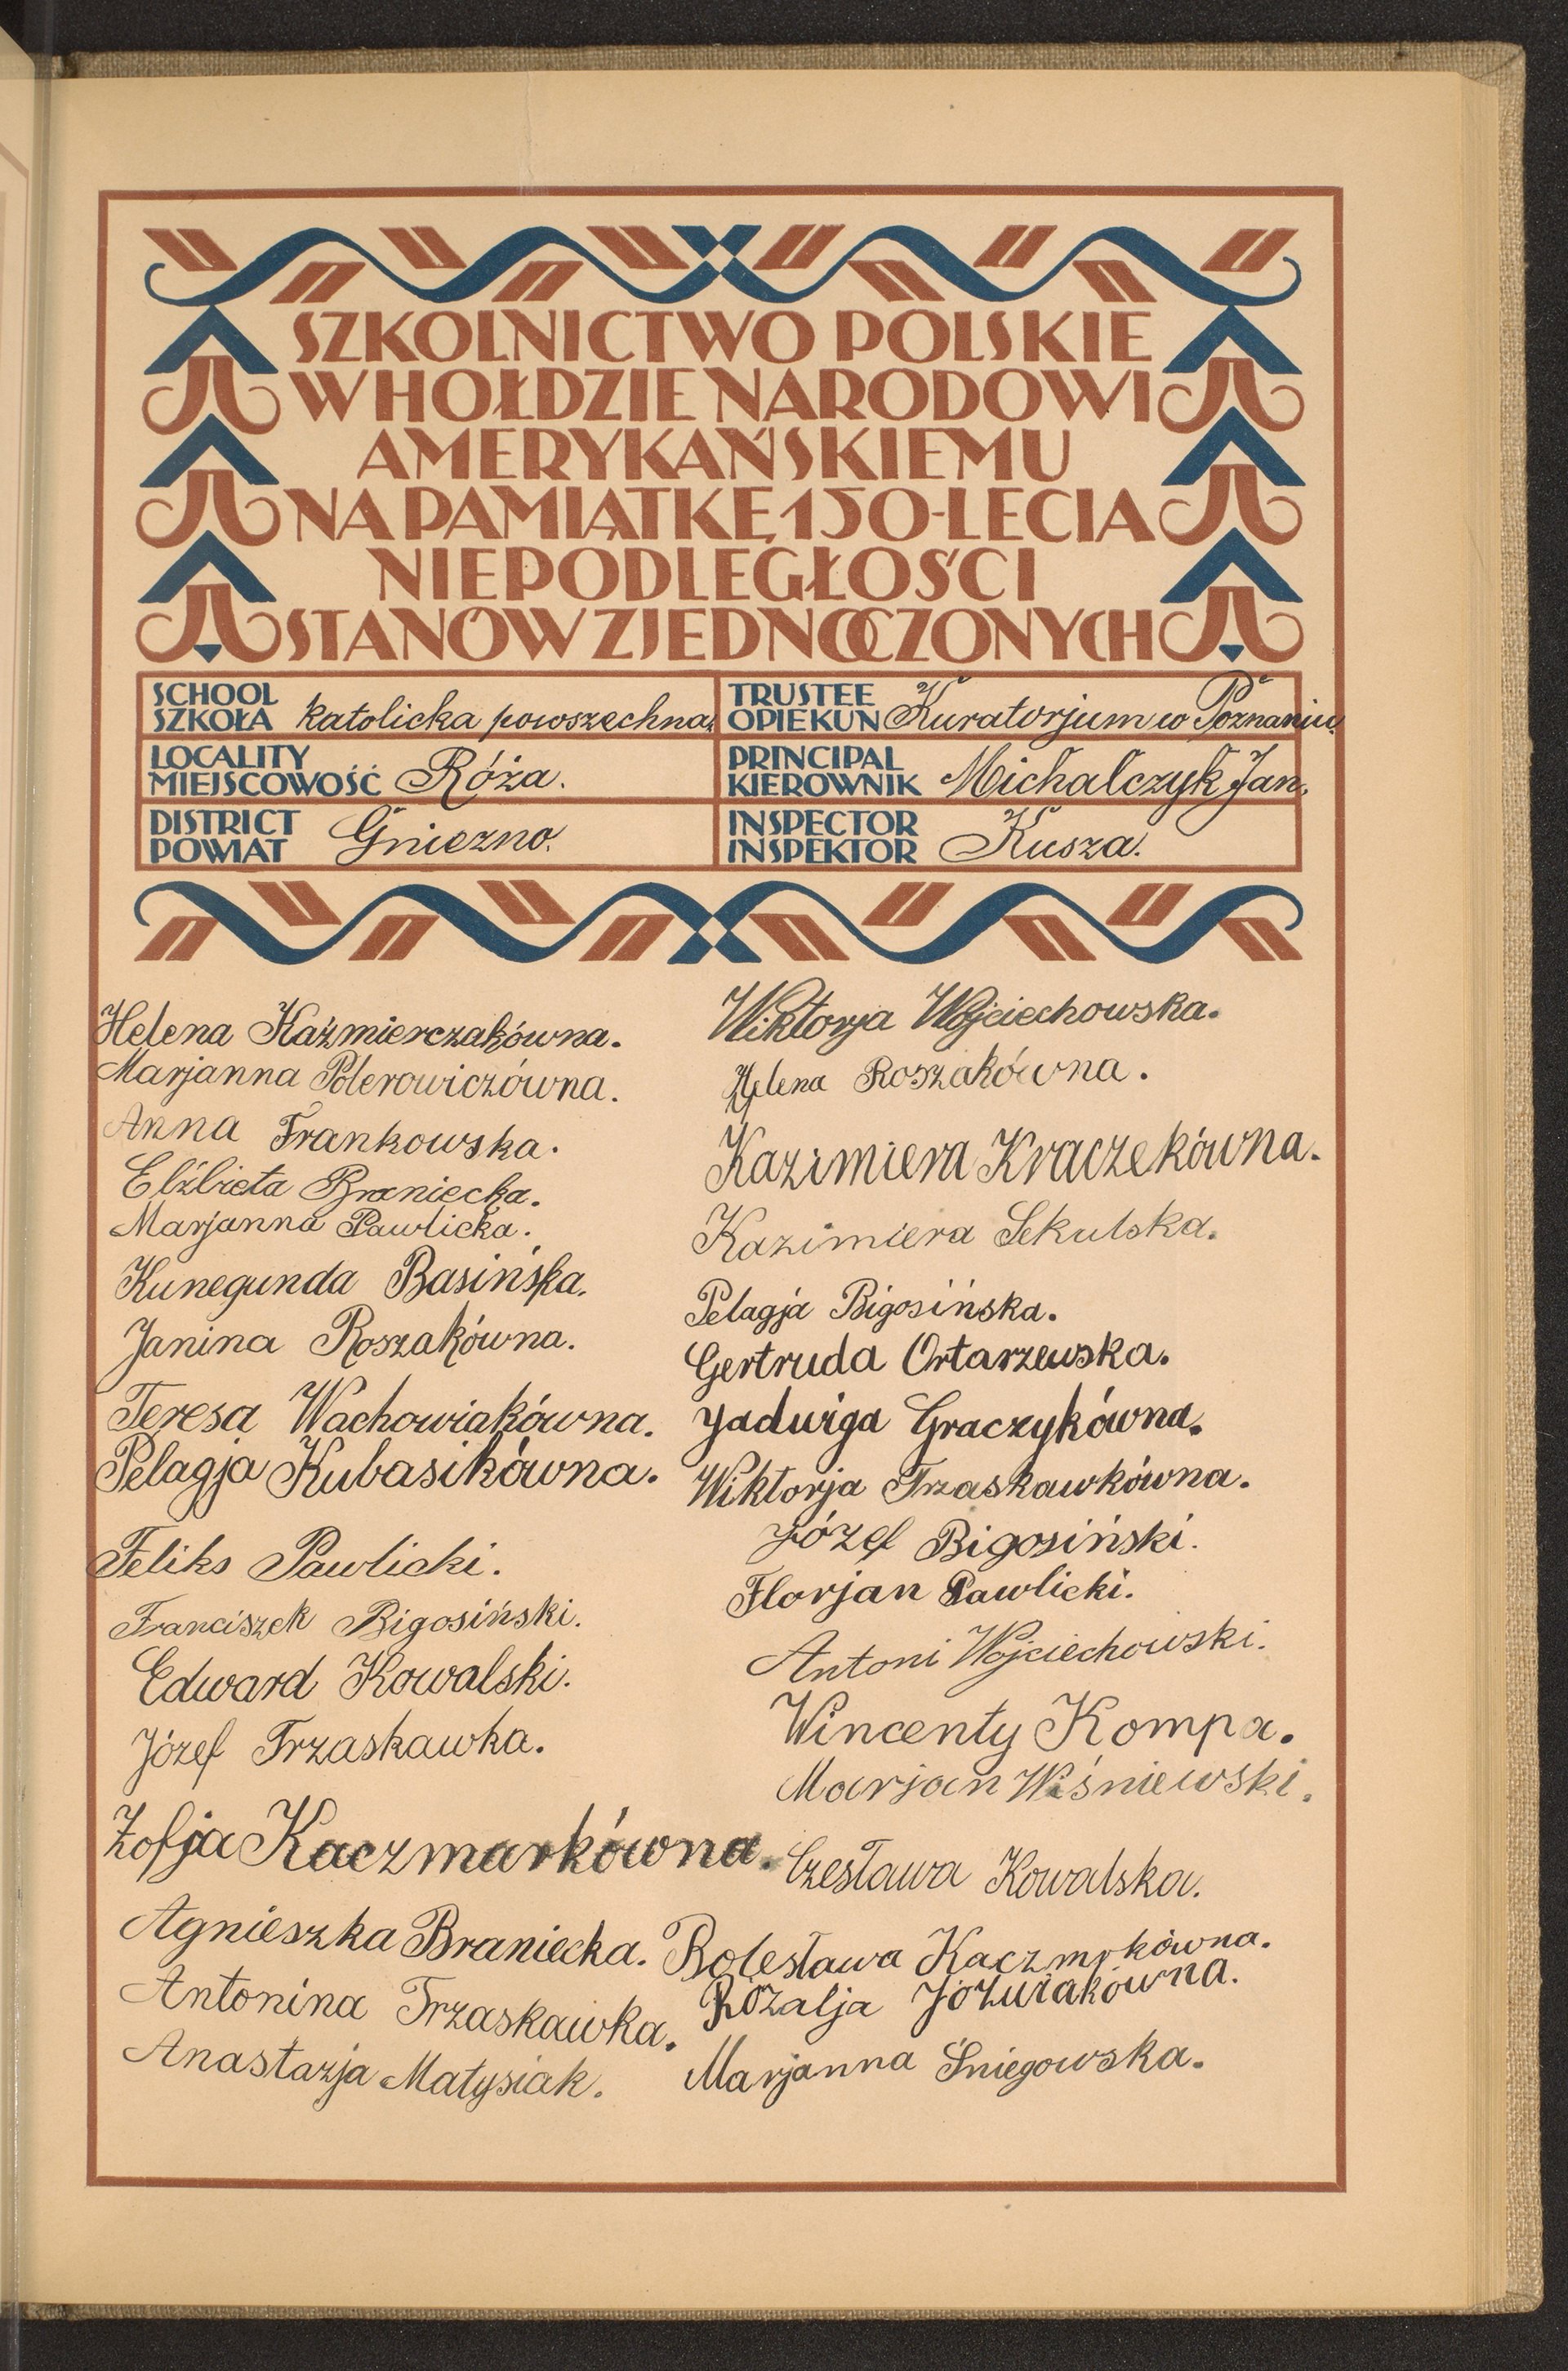 SZKOLNICTWO POLSKIE
W HOŁDZIE NARODOWI
AMERYKAŃSKIEMU
NA PAMIĄTKĘ 150-LECIA
NIEPODLEGŁOŚCI
STANÓW ZJEDNOCZONYCH
SCHOOL
SZKOŁA katolicka powszechna.
TRUSTEE
OPIEKUN Kuratorjum w Poznaniu.
LOCALITY
MIEJSCOWOŚĆ Róża.
PRINCIPAL
KIEROWNIK Michalczyk Jan.
DISTRICT
POWIAT Gniezno.
INSPECTOR
INSPEKTOR Kusza.
Helena Kaźmierczakówna.
Marjanna Polerowiczówna.
Anna Frankowska.
Elżbieta Braniecka.
Marjanna Pawlicka.
Kunegunda Basińska.
Janina Roszakówna.
Teresa Wachowiakówna.
Pelagja Kubasikówna.
Feliks Pawlicki.
Franciszek Bigosiński.
Edward Kowalski.
Józef Trzaskawka.
Zofja Kaczmarkówna.
Agnieszka Braniecka.
Antonina Trzaskawka.
Anastazja Matysiak.
Wiktorja Wojciechowska.
Helena Roszakówna.
Kazimiera Kraczekówna.
Kazimiera Sekulska.
Pelagja Bigosińska.
Gertruda Ortarzewska.
Jadwiga Graczykówna.
Wiktorja Trzaskawkówna.
Józef Bigosiński.
Florjan Pawlicki.
Antoni Wojciechowski.
Wincenty Kompa.
Marjan Wiśniewski.
Czesława Kowalska.
Bolesława Kaczmrkówna.
Rózalja Jóżwiakówna.
Marjanna Śniegowska.